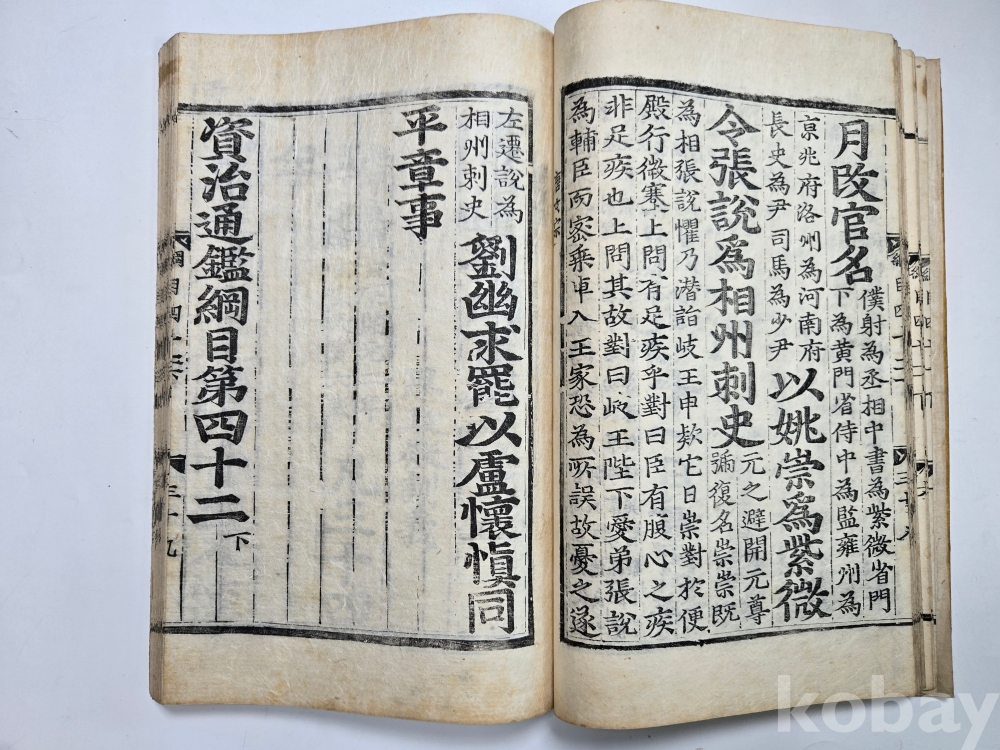 月改官名
僕射為丞相中書為紫微省門
下為黄門省侍中為監雍州為
京兆府洛州為河南府
長史為尹司馬為少尹
以姚崇爲紫微
令張說爲相州刺史
元之避開元尊
號復名崇崇既
為相張說懼乃潜詣岐王申欵它日崇對於便
殿行微蹇上問有足疾乎對曰臣有腹心之疾
非足疾也上問其故對曰岐王陛下愛弟張說
為輔臣而密乘車入王家恐為所誤故憂之遂
左遷說為
相州刺史
劉幽求罷以盧懷愼同
平章事
資治通鑑綱目第四十二
下
綱目四十二
三十九
kobay